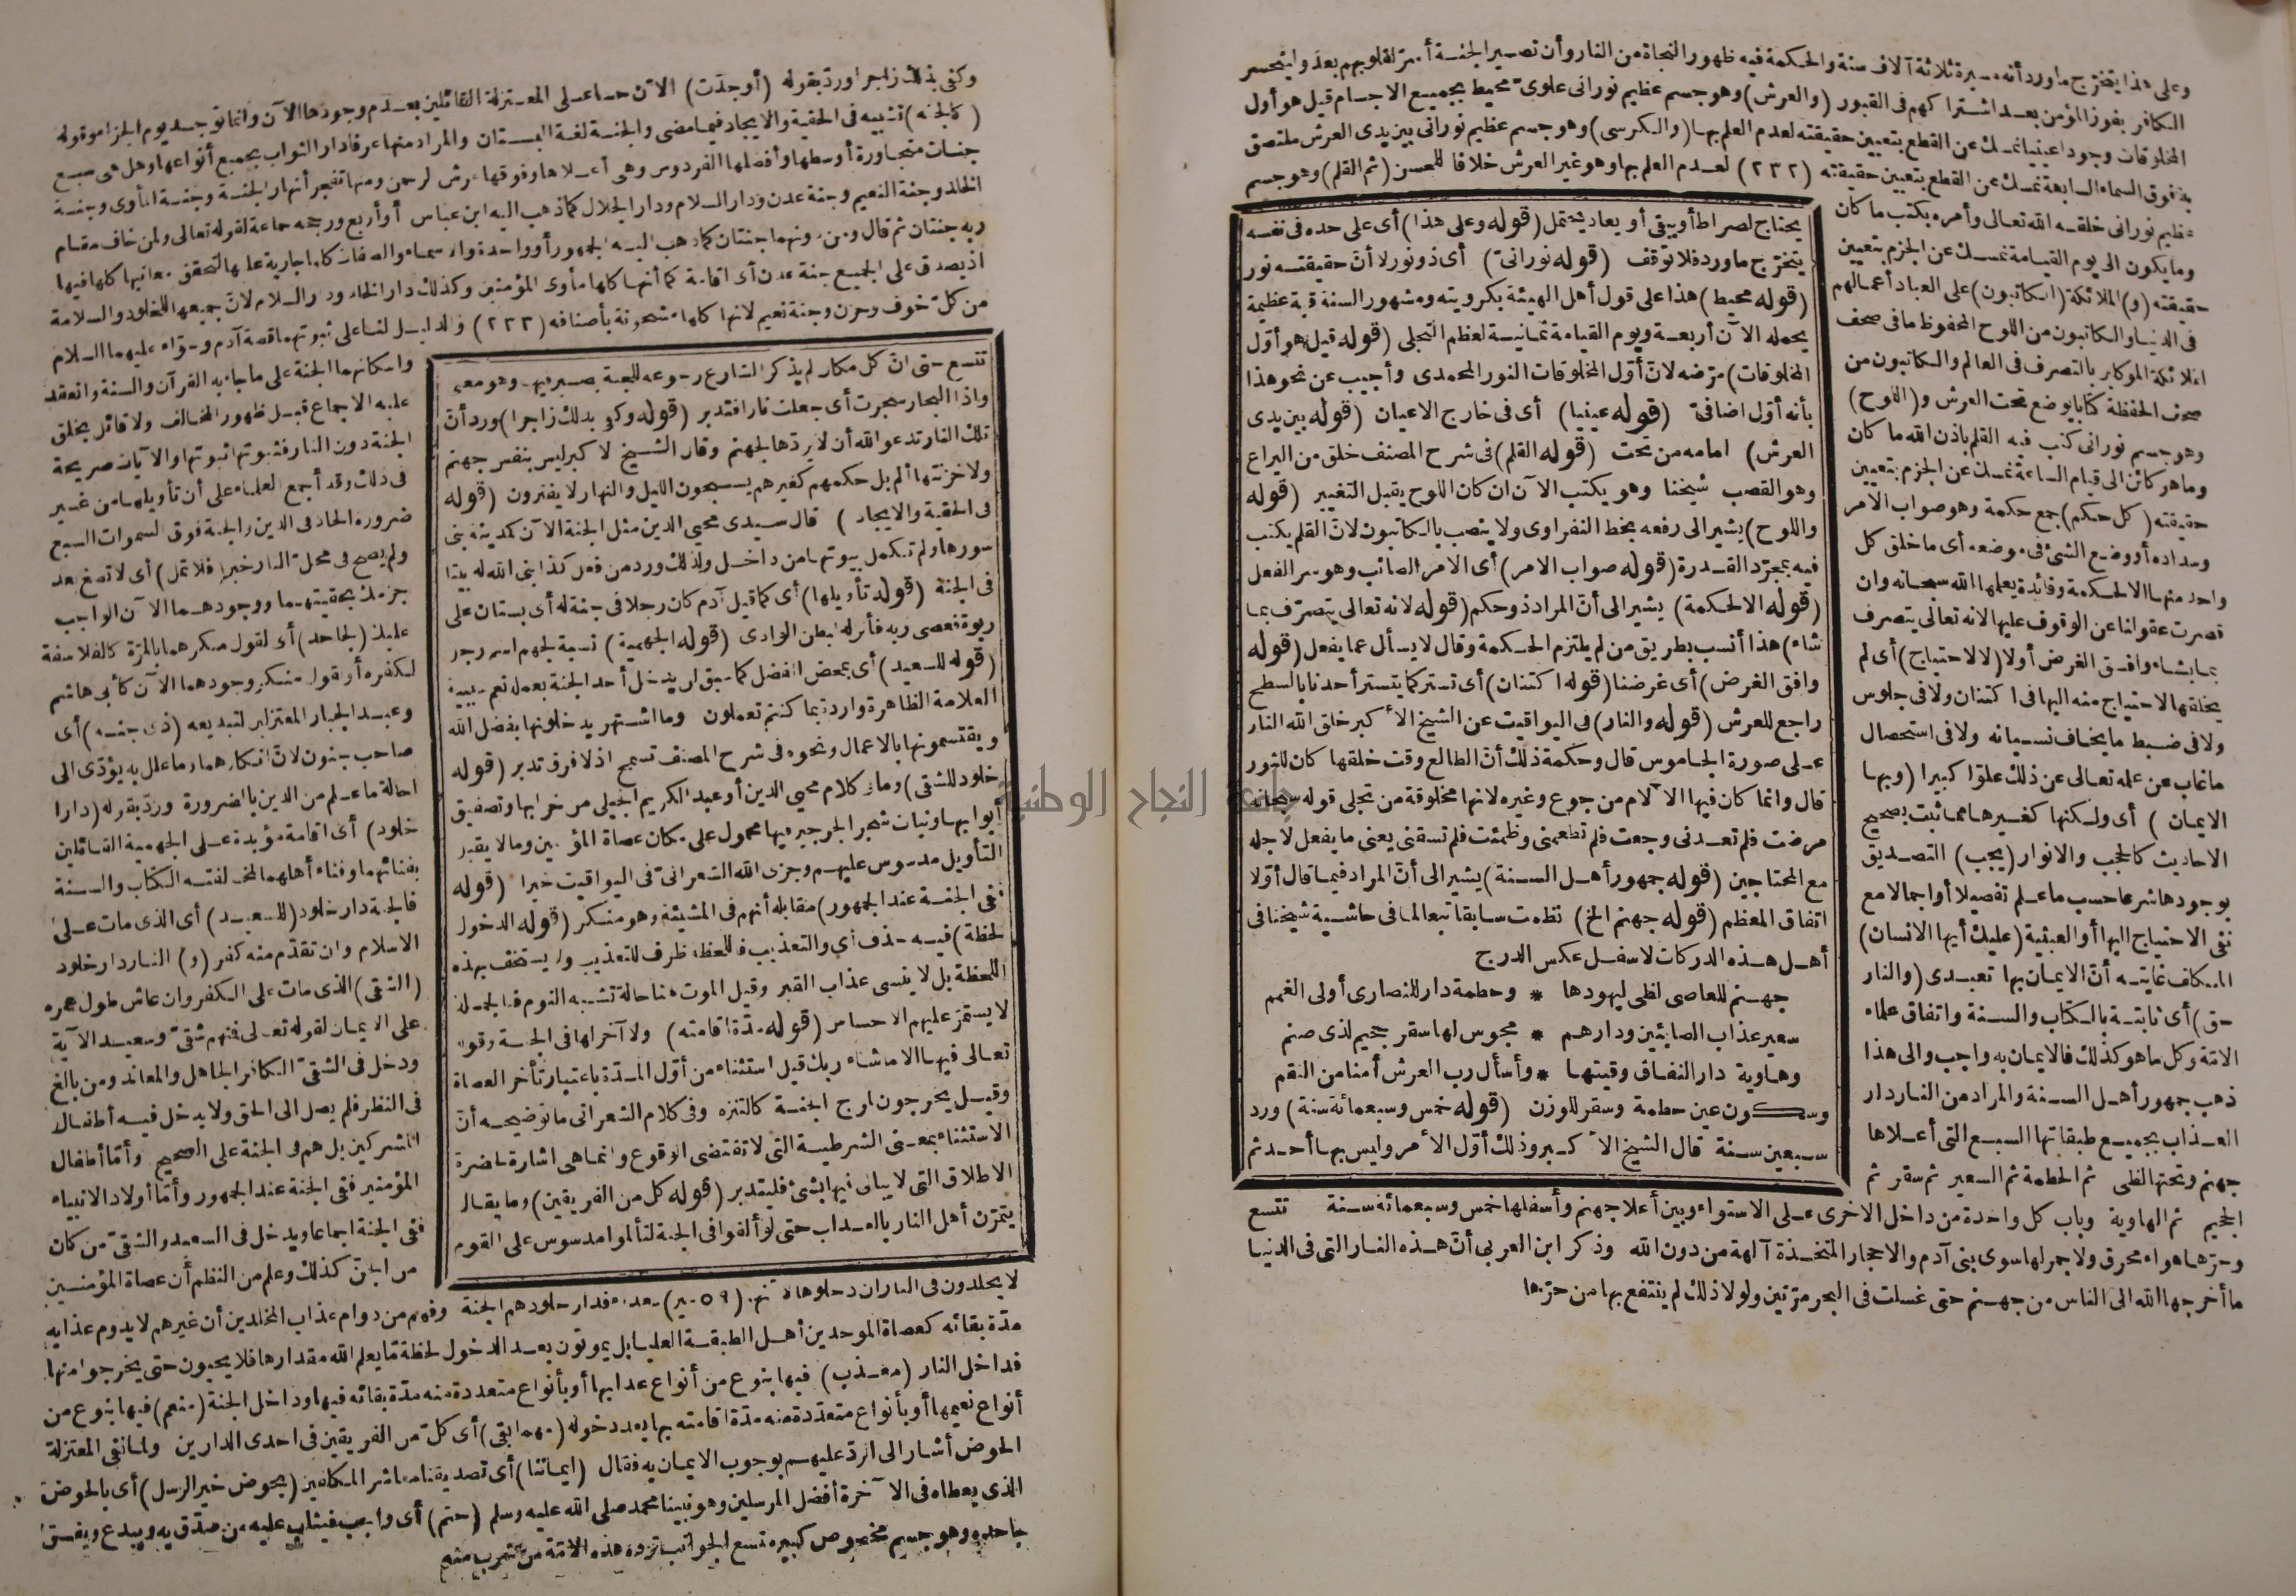 وعلى هذا يتخرّج ما ورد أنه مسيرة ثلاثة آلاف سنة والحكمة فيه ظهور النجاة من النار وأن تصير الجنة أسرّ لقلوبهم بعد وليتحسر
الكافر بفوز المؤمن بعد اشتراكهم فى العبور (والعرش) وهو جسم عظيم نورانى علوىّ محيط بجميع الاجسام قيل هو أول
المخلوقات وجودا عينيا نمسك عن القطع بتعيين حقيقته لعدم العلم بها (والكرسى) وهو جسم عظيم نورانى بين يدى العرش ملتصق
به فوق السماء السابعة نمسك عن القطع بتعيين حقيقته (٢٣٢) لعدم العلم بها وهو غير العرش خلافا للحسن (ثم القلم) وهو جسم
عظيم نورانى خلقه الله تعالى وأمره بكتب ما كان
وما يكون الى يوم القيامة نمسك عن الجزم بتعيين
حقيقته (و) الملائكة (الكاتبون) على العباد أعمالهم
فى الدنيا والكاتبون من اللوح المحفوظ ما فى صحف
الملائكة الموكلين بالتصرف فى العالم والكاتبون من
صحف الحفظة كتابا يوضع تحت العرش و(اللوح)
وهو جسم نورانى كتب فيه القلم باذن الله ما كان
وما هو كائن الى قيام الساعة نمسك عن الجزم بتعيين
حقيقته (كل حكم) جمع حكمة وهو صواب الامر
وسداده أو وضع الشئ فى موضعه أى ما خلق كل
واحد منها الا لحكمة وفائدة يعلمها الله سبحانه وان
قصرت عقولنا عن الوقوف عليها لانه تعالى يتصرف
بما يشاء وافق الغرض أولا (لا لاحتياج) أى لم
يخلقها لاحتياج منه اليها فى اكتنان ولا فى جلوس
ولا فى ضبط ما يخاف نسيانه ولا فى استحصال
ما غاب عن علمه تعالى عن ذلك علوّا كبيرا (وبها
الايمان) أى ولكنها كغيرها مما ثبت بصحيح
الاحاديث كالحجب والانوار (يجب) التصديق
بوجودها شرعا حسب ما علم تفصيلا أو اجمالا مع
نفى الاحتياج اليها أو العبثية (عليك أيها الانسان)
المكلف غايته أنّ الايمان بها تعبدى (والنار
حق) أى ثابتة بالكتاب والسنة واتفاق علماء
الامّة وكل ما هو كذلك فالايمان به واجب والى هذا
ذهب جمهور أهل السنة والمراد من النار دار
العذاب بجميع طبقاتها السبع التى أعلاها
جهنم وتحتها لظى ثم الحطمة ثم السعير ثم سقر ثم
الجحيم ثم الهاوية وباب كل واحدة من داخل الاخرى على الاستواء وبين أعلا جهنم وأسفلها خمس وسبعمائة سنة
وحرّها هواء محرق ولا جمر لها سوى بنى آدم والاحجار المتخذة آلهة من دون الله وذكر ابن العربى أنّ هذه النار التى فى الدنيا
ما أخرجها الله الى الناس من جهنم حتى غسلت فى البحر مرّتين ولولا ذلك لم ينتفع بها من حرّها
يحتاج لصراط أو يبقى أو يعاد يحتمل (قوله وعلى هذا) أى على حده فى نفسه
يتخرّج ما ورد فلا توقف (قوله نورانىّ) أى ذو نور لا أنّ حقيقته نور
(قوله محيط) هذا على قول أهل الهيئة بكرويته ومشهور السنة قبة عظيمة
يحمله الآن أربعة ويوم القيامة ثمانية لعظم التجلى (قوله قيل هو أوّل
المخلوقات) مرّضه لانّ أوّل المخلوقات النور المحمدى وأجيب عن نحو هذا
بأنه أوّل اضافىّ (قوله عينيا) أى فى خارج الاعيان (قوله بين يدى
العرش) امامه من تحت (قوله القلم) فى شرح المصنف خلق من اليراع
وهو القصب شيخنا وهو يكتب الآن ان كان اللوح يقبل التغيير (قوله
واللوح) يشير الى رفعه بخط النفراوى ولا ينصب بالكاتبون لانّ القلم يكتب
فيه بمجرّد القدرة (قوله صواب الامر) أى الامر الصائب وهو سر الفعل
(قوله الا لحكمة) يشير الى أنّ المراد ذو حكم (قوله لانه تعالى يتصرّف بما
شاء) هذا أنسب بطريق من لم يلتزم الحكمة وقال لا يسأل عما يفعل (قوله
وافق الغرض) أى غرضنا (قوله اكتنان) أى تستر كما يتستر أحدنا بالسطح
راجع للعرش (قوله والنار) فى اليواقيت عن الشيخ الأكبر خلق الله النار
على صورة الجاموس قال وحكمة ذلك أنّ الطالع وقت خلقها كان للثور
قال وانما كان فيها الآلام من جوع وغيره لانها مخلوقة من تجلى قوله سبحانه
مرضت فلم تعدنى وجعت فلم تطعمنى وظمئت فلم تسقنى يعنى ما يفعل لاجله
مع المحتاجين (قوله جمهور أهل السنة) يشير الى أنّ المراد فيما قال أوّلا
اتفاق المعظم (قوله جهنم الخ) نظمت سابقا تبعا لما فى حاشية شيخنا فى
أهل هذه الدركات لاسفل عكس الدرج
جهنم للعاصى لظى ليهودها * وحطمة دار للنصارى أولى الغمم
سعير عذاب الصابئين ودارهم * مجوس لها سقر جحيم لذى صنم
وهاوية دار النفاق وقيتها * وأسأل رب العرش أمنا من النقم
وسكون عين حطمة وسقر للوزن (قوله خمس وسبعمائة سنة) ورد
سبعين سنة قال الشيخ الأكبر وذلك أوّل الأمر وليس بها أحد ثم
تتسع
وكفى بذلك زاجرا وردّ بقوله (أوجدت) الآن على المعتزلة القائلين بعدم وجودها الآن وانما توجد يوم الجزاء وقوله
(كالجنه) تشبيه فى الحقية والايجاد فيما مضى والجنة لغة البستان والمراد منها عرفا دار الثواب بجميع أنواعها وهل هى سبع
جنات متجاورة أوسطها وأفضلها الفردوس وهى أعلاها وفوقها عرش الرحمن ومنها تفجر أنهار الجنة وجنة المأوى وجنة
الخلد وجنة النعيم وجنة عدن ودار السلام ودار الجلال كما ذهب اليه ابن عباس أو أربع ورجحه جماعة لقوله تعالى ولمن خاف مقام
ربه جنتان ثم قال ومن دونهما جنتان كما ذهب اليه الجمهور أو واحدة والاسماء والصفات كلها جارية عليها لتحقق معانيها كلها فيها
اذ يصدق على الجميع جنة عدن أى اقامة كما أنها كلها مأوى المؤمنين وكذلك دار الخلد ودار السلام لانّ جميعها للخلود والسلامة
من كلّ خوف وحزن وجنة نعيم لانها كلها مشحونة بأصنافه (٢٣٣) والدليل لنا على ثبوتهما قصة آدم وحوّاء عليهما السلام
واسكانهما الجنة على ما جاء به القرآن والسنة وانعقد
عليه الاجماع قبل ظهور المخالف ولا قائل بخلق
الجنة دون النار فثبوتها ثبوتها والآيات صريحة
فى ذلك وقد أجمع العلماء على أن تأويلها من غير
ضرورة الحاد فى الدين والجنة فوق السموات السبع
ولم يصح فى محل النار خبر (فلا تمل) أى لا تصغ بعد
جزمك بحقيتهما ووجودهما الآن الواجب
عليك (لجاحد) أى لقول منكرهما بالمرّة كالفلاسفة
لكفره أو قول منكر وجودهما الآن كأبى هاشم
وعبد الجبار المعتزلى لتبديعه (ذى جنه) أى
صاحب جنون لانّ انكارهما وما علل به يؤدّى الى
احالة ما علم من الدين بالضرورة وردّ بقوله (دارا
خلود) أى اقامة مؤبدة على الجهمية القائلين
بفنائهما وفناء أهلهما لمخالفته الكتاب والسنة
فالجنة دار خلود (للسعيد) أى الذى مات على
الاسلام وان تقدّم منه كفر (و) النار دار خلود
(الشقى) الذى مات على الكفر وان عاش طول عمره
على الايمان لقوله تعالى فمنهم شقىّ وسعيد الآية
ودخل فى الشقىّ الكافر الجاهل والمعاند ومن بالغ
فى النظر فلم يصل الى الحق ولا يدخل فيه أطفال
المشركين بل هم فى الجنة على الصحيح وأمّا أطفال
المؤمنين ففى الجنة عند الجمهور وأمّا أولاد الانبياء
ففى الجنة اجماعا ويدخل فى السعيد والشقىّ من كان
من الجنّ كذلك وعلم من النظم أن عصاة المؤمنين
لا يخلدون فى النار ان دخلوها وفهم من دوام عذاب المخلدين أن غيرهم لا يدوم عذابه
مدّة بقائه كعصاة الموحدين أهل الطبقة العليا بل يموتون بعد الدخول لحظة مّا يعلم الله مقدارها فلا يحيون حتى يخرجوا منها
فداخل النار (معذب) فيها بنوع من أنواع عذابها أو بأنواع متعددة منه مدّة بقائه فيها وداخل الجنة (منعم) فيها بنوع من
أنواع نعيمها أو بأنواع متعدّدة منه مدّة اقامته بها بعد دخوله (مهما بقى) أى كلّ من الفريقين فى احدى الدارين ولما نفى المعتزلة
الحوض أشار الى الردّ عليهم بوجوب الايمان به فقال (ايماننا) أى تصديقنا معاشر المكلفين (بحوض خير الرسل) أى بالحوض
الذى يعطاه فى الآخرة أفضل المرسلين وهو نبينا محمد صلى الله عليه وسلم (حتم) أى واجب فيثاب عليه من صدّق به ويبدع ويفسق
جاحده وهو جسم مخصوص كبير متسع الجوانب ترده هذه الامّة من شرب منه
تتسع حتى انّ كل مكان لم يذكر الشارع رجوعه للجنة يصير فيها وهو معنى
واذا البحار سجرت أى جعلت نارا فتدبر (قوله وكفى بذلك زاجرا) ورد أن
تلك النار تدعو الله أن لا يردّها لجهنم وقال الشيخ الاكبر ليس بنفس جهنم
ولا خزنتها ألم بل حكمهم كغيرهم يسبحون الليل والنهار لا يفترون (قوله
فى الحقية والايجاد) قال سيدى محيى الدين مثل الجنة الآن كمدينة بنى
سورها ولم تكمل بيوتها من داخل ولذلك ورد من فعل كذا بنى الله له بيتا
فى الجنة (قوله تأويلها) أى كما قيل آدم كان رجلا فى جنة له أى بستان على
ربوة فعصى ربه فأنزله لبطن الوادى (قوله الجهمية) نسبة لجهم اسم رجل
(قوله للسعيد) أى بمحض الفضل كما سبق لن يدخل أحد الجنة بعمله نعم
العلامة الظاهرة واردة بما كنتم تعملون وما اشتهر يدخلونها بفضل الله
ويقتسمونها بالاعمال ونحوه فى شرح المصنف تسمح اذ لا فرق تدبر (قوله
خلود للشقى) وما فى كلام محيى الدين أو عبد الكريم الجيلى من خرابها وتصفيق
أبوابها ونبات شجر الجرجير فيها محمول على مكان عصاة المؤمنين وما لا يقبل
التأويل مدسوس عليهم وجزى الله الشعرانىّ فى اليواقيت خيرا (قوله
ففى الجنة عند الجمهور) مقابله أنهم فى المشيئة وهو منكر (قوله الدخول
لحظة) فيه حذف أى والتعذيب فلحظة ظرف للتعذيب ولا يستخف بهذه
اللحظة بل لا ينسى عذاب القبر وقيل الموت هنا حالة تشبه النوم فبالجملة
لا يستمرّ عليهم الاحساس (قوله مدّة اقامته) ولا آخر لها فى الجنة وقوله
تعالى فيها الا ما شاء ربك قيل استثناء من أوّل المدّة باعتبار تأخر العصاة
وقيل يخرجون خارج الجنة كالتنزه وفى كلام الشعرانى ما توضيحه أنّ
الاستثناء بمعنى الشرطية التى لا تقتضى الوقوع وانما هى اشارة لحضرة
الاطلاق التى لا يبالى فيها بشئ فليتدبر (قوله كل من الفريقين) وما يقال
يتمرّن أهل النار بالعذاب حتى لو ألقوا فى الجنة لتألموا مدسوس على القوم
جامعة النجاح الوطنية